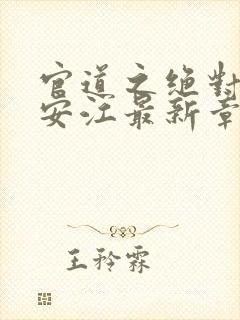 官道之绝对
安江最新章
王矜霖